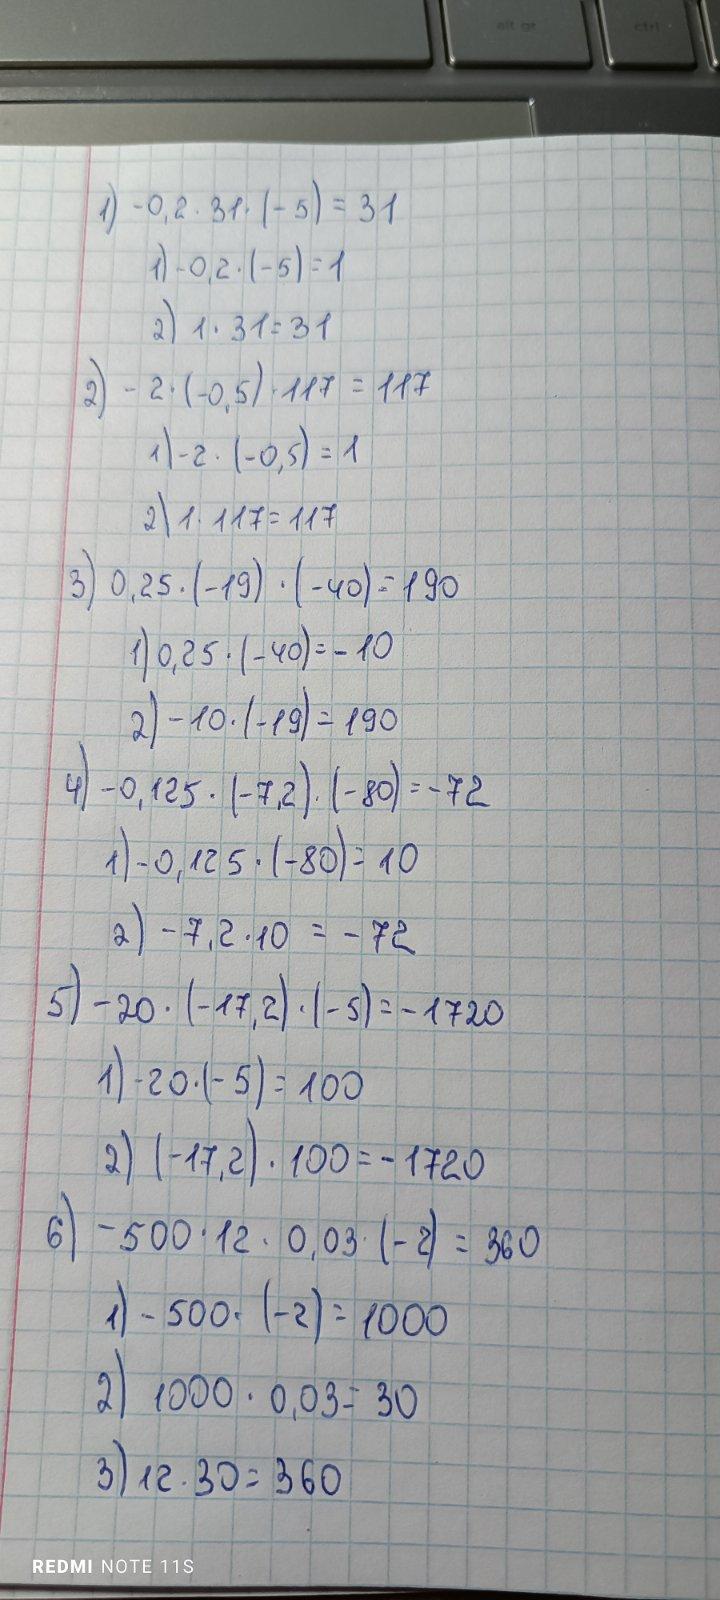 alt gr
ctrl
1) -0,2 · 31 · (-5) = 31
1) -0,2 · (-5) = 1
2) 1 · 31 = 31
2) -2 · (-0,5) · 117 = 117
1) -2 · (-0,5) = 1
2) 1 · 117 = 117
3) 0,25 · (-19) · (-40) = 190
1) 0,25 · (-40) = -10
2) -10 · (-19) = 190
4) -0,125 · (-7,2) · (-80) = -72
1) -0,125 · (-80) = 10
2) -7,2 · 10 = -72
5) -20 · (-17,2) · (-5) = -1720
1) -20 · (-5) = 100
2) (-17,2) · 100 = -1720
6) -500 · 12 · 0,03 · (-2) = 360
1) -500 · (-2) = 1000
2) 1000 · 0,03 = 30
3) 12 · 30 = 360
REDMI NOTE 11S